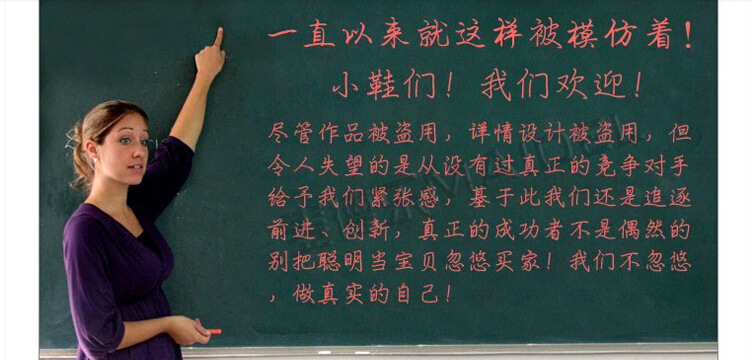 一直以来就这样被模仿着！
小鞋们！我们欢迎！
尽管作品被盗用，详情设计被盗用，但
令人失望的是从没有过真正的竞争对手
给予我们紧张感，基于此我们还是追逐
前进、创新，真正的成功者不是偶然的
别把聪明当宝贝忽悠买家！我们不忽悠
，做真实的自己！